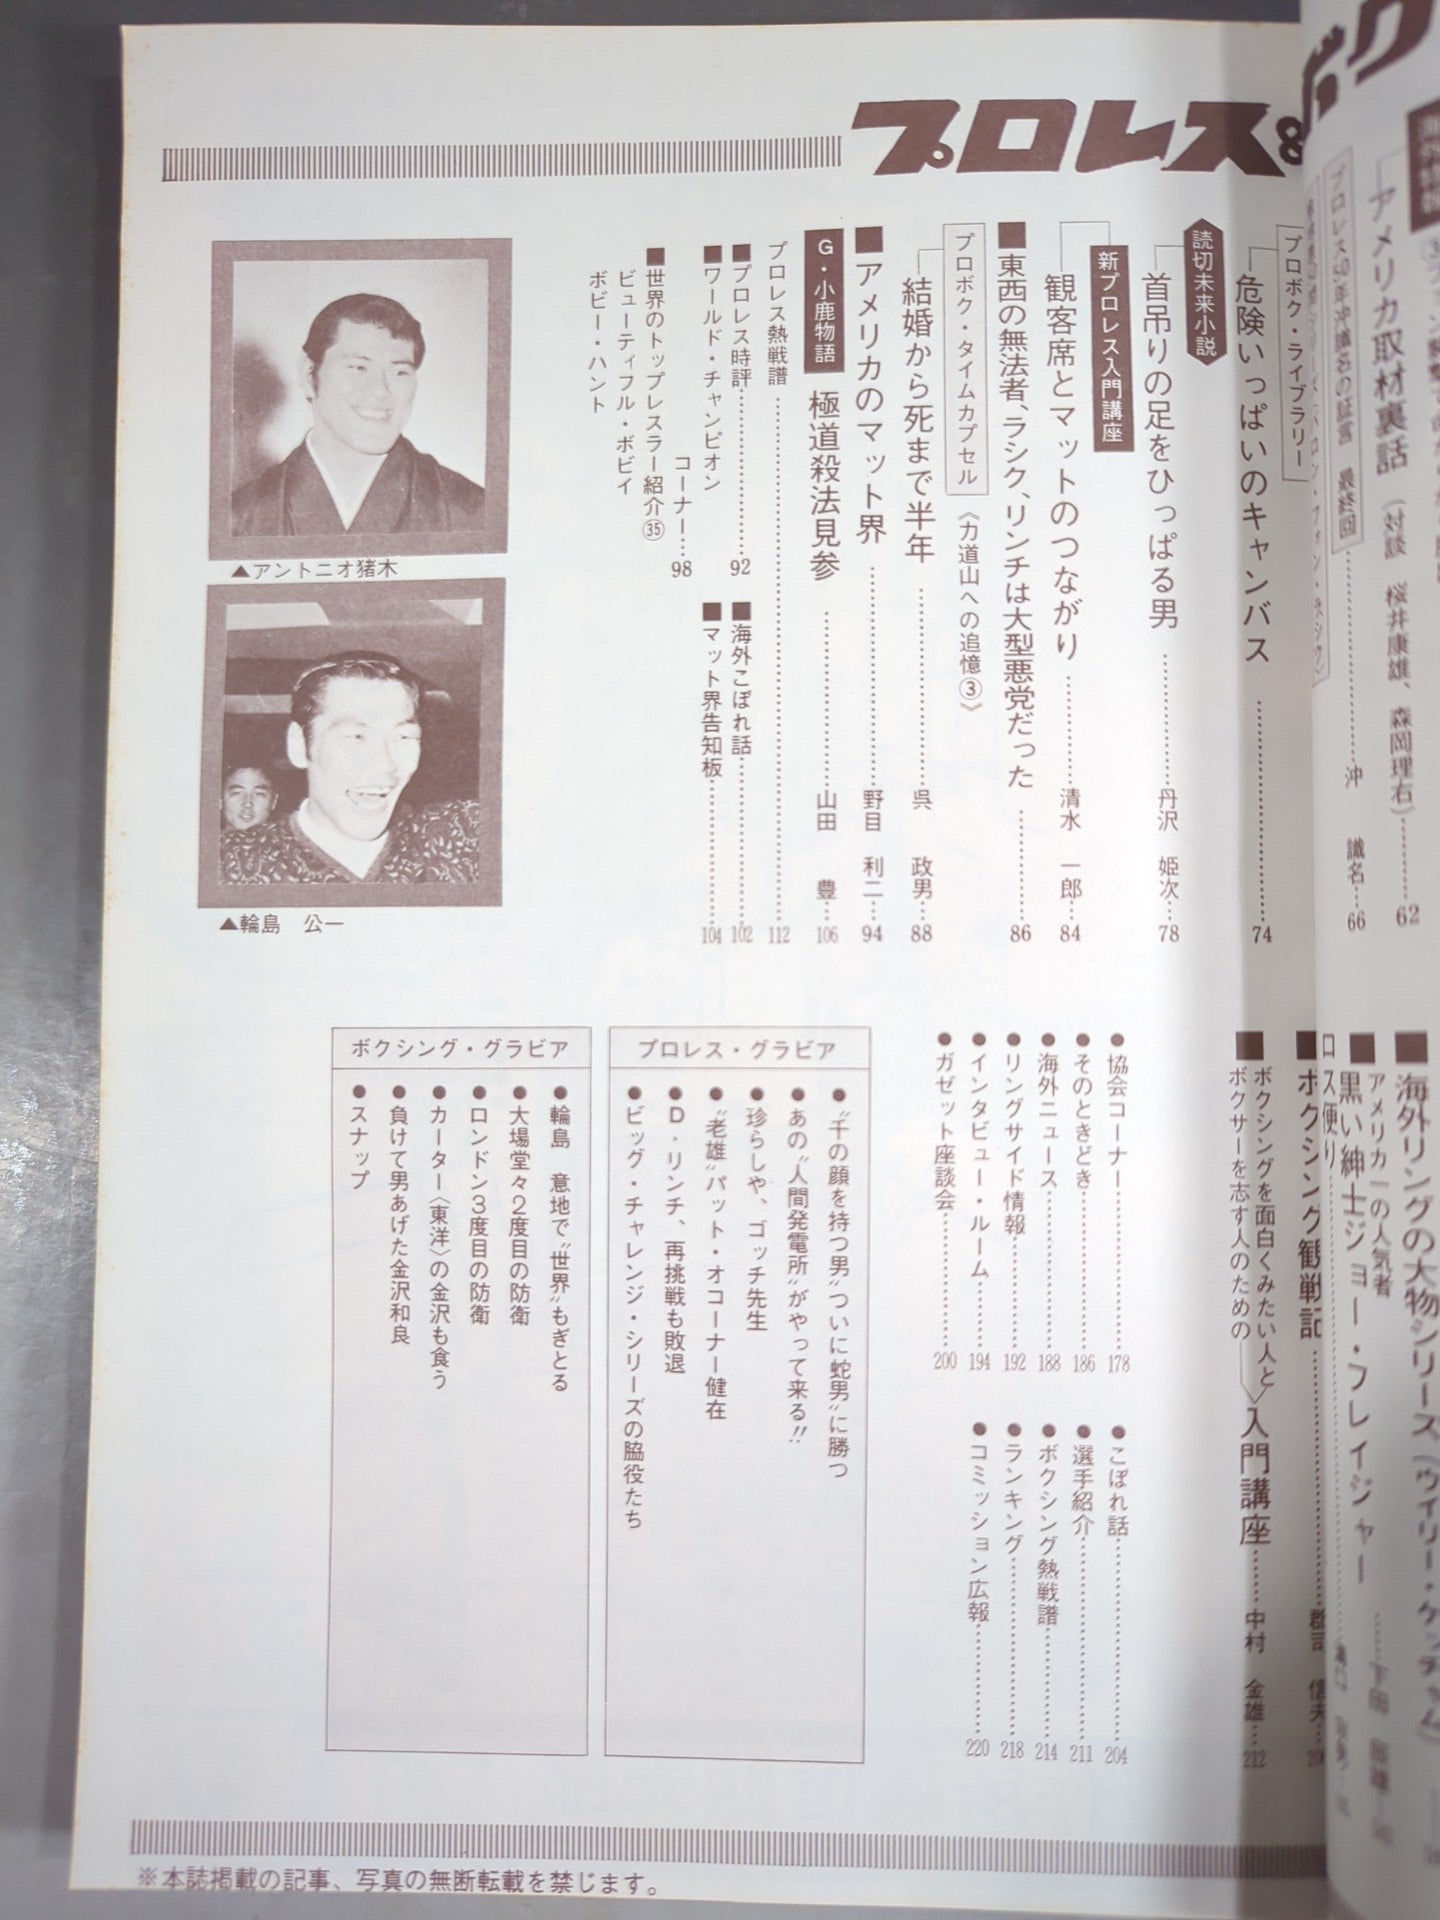 プロレス&
アメリカ取材裏話（対談 桜井康雄、森岡理右）…62
プロレス50年沖識名の証言 最終回…沖 識名…66
プロボク・ライブラリー
危険いっぱいのキャンバス…74
読切未来小説
首吊りの足をひっぱる男…丹沢 姫次…78
新プロレス入門講座
観客席とマットのつながり…清水 一郎…84
■東西の無法者、ラシク、リンチは大型悪党だった…86
プロボク・タイムカプセル《力道山への追憶③》
結婚から死まで半年…呉 政男…88
■アメリカのマット界…野目 利二…94
G・小鹿物語 極道殺法見参…山田 豊…106
プロレス熱戦譜…112
■プロレス時評…92
■海外こぼれ話…102
■ワールド・チャンピオン
コーナー…98
■マット界告知板…104
■世界のトップレスラー紹介㉟
ビューティフル・ボビイ
ボビー・ハント
▲アントニオ猪木
▲輪島 公一
■海外リングの大物シリーズ
アメリカ一の人気者
■黒い紳士ジョー・フレイジャー
■ボクシング観戦記
■ボクシングを面白くみたい人と
ボクサーを志す人のための
入門講座…中村 金雄…212
●協会コーナー…178
●そのときどき…186
●海外ニュース…188
●リングサイド情報…192
●インタビュー・ルーム…194
●ガゼット座談会…200
●こぼれ話…204
●選手紹介…211
●ボクシング熱戦譜…214
●ランキング…218
●コミッション広報…220
プロレス・グラビア
●〝千の顔を持つ男〟ついに〝蛇男〟に勝つ
●あの〝人間発電所〟がやって来る!!
●珍らしや、ゴッチ先生
●〝老雄〟パット・オコーナー健在
●D・リンチ、再挑戦も敗退
●ビッグ・チャレンジ・シリーズの脇役たち
ボクシング・グラビア
●輪島 意地で〝世界〟もぎとる
●大場堂々2度目の防衛
●ロンドン3度目の防衛
●カーター〈東洋〉の金沢も食う
●負けて男あげた金沢和良
●スナップ
※本誌掲載の記事、写真の無断転載を禁じます。